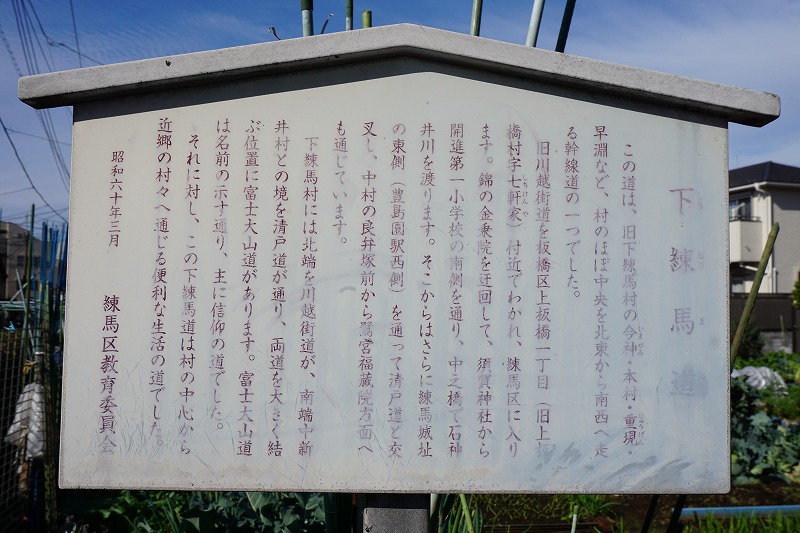 下練馬道
この道は、旧下練馬村の今神・本村・重現・
早淵など、村のほぼ中央を北東から南西へ走
る幹線道の一つでした。
旧川越街道を板橋区上板橋一丁目（旧上板
橋村字七軒家）付近でわかれ、練馬区に入り
ます。錦の金乗院を迂回して、須賀神社から
開進第一小学校の南側を通り、中之橋で石神
井川を渡ります。そこからはさらに練馬城址
の東側（豊島園駅西側）を通って清戸道と交
叉し、中村の良弁塚前から鷺宮福蔵院方面へ
も通じています。
下練馬村には北端を川越街道が、南端中新
井村との境を清戸道が通り、両道を大きく結
ぶ位置に富士大山道があります。富士大山道
は名前の示す通り、主に信仰の道でした。
それに対し、この下練馬道は村の中心から
近郷の村々へ通じる便利な生活の道でした。
昭和六十年三月
練馬区教育委員会